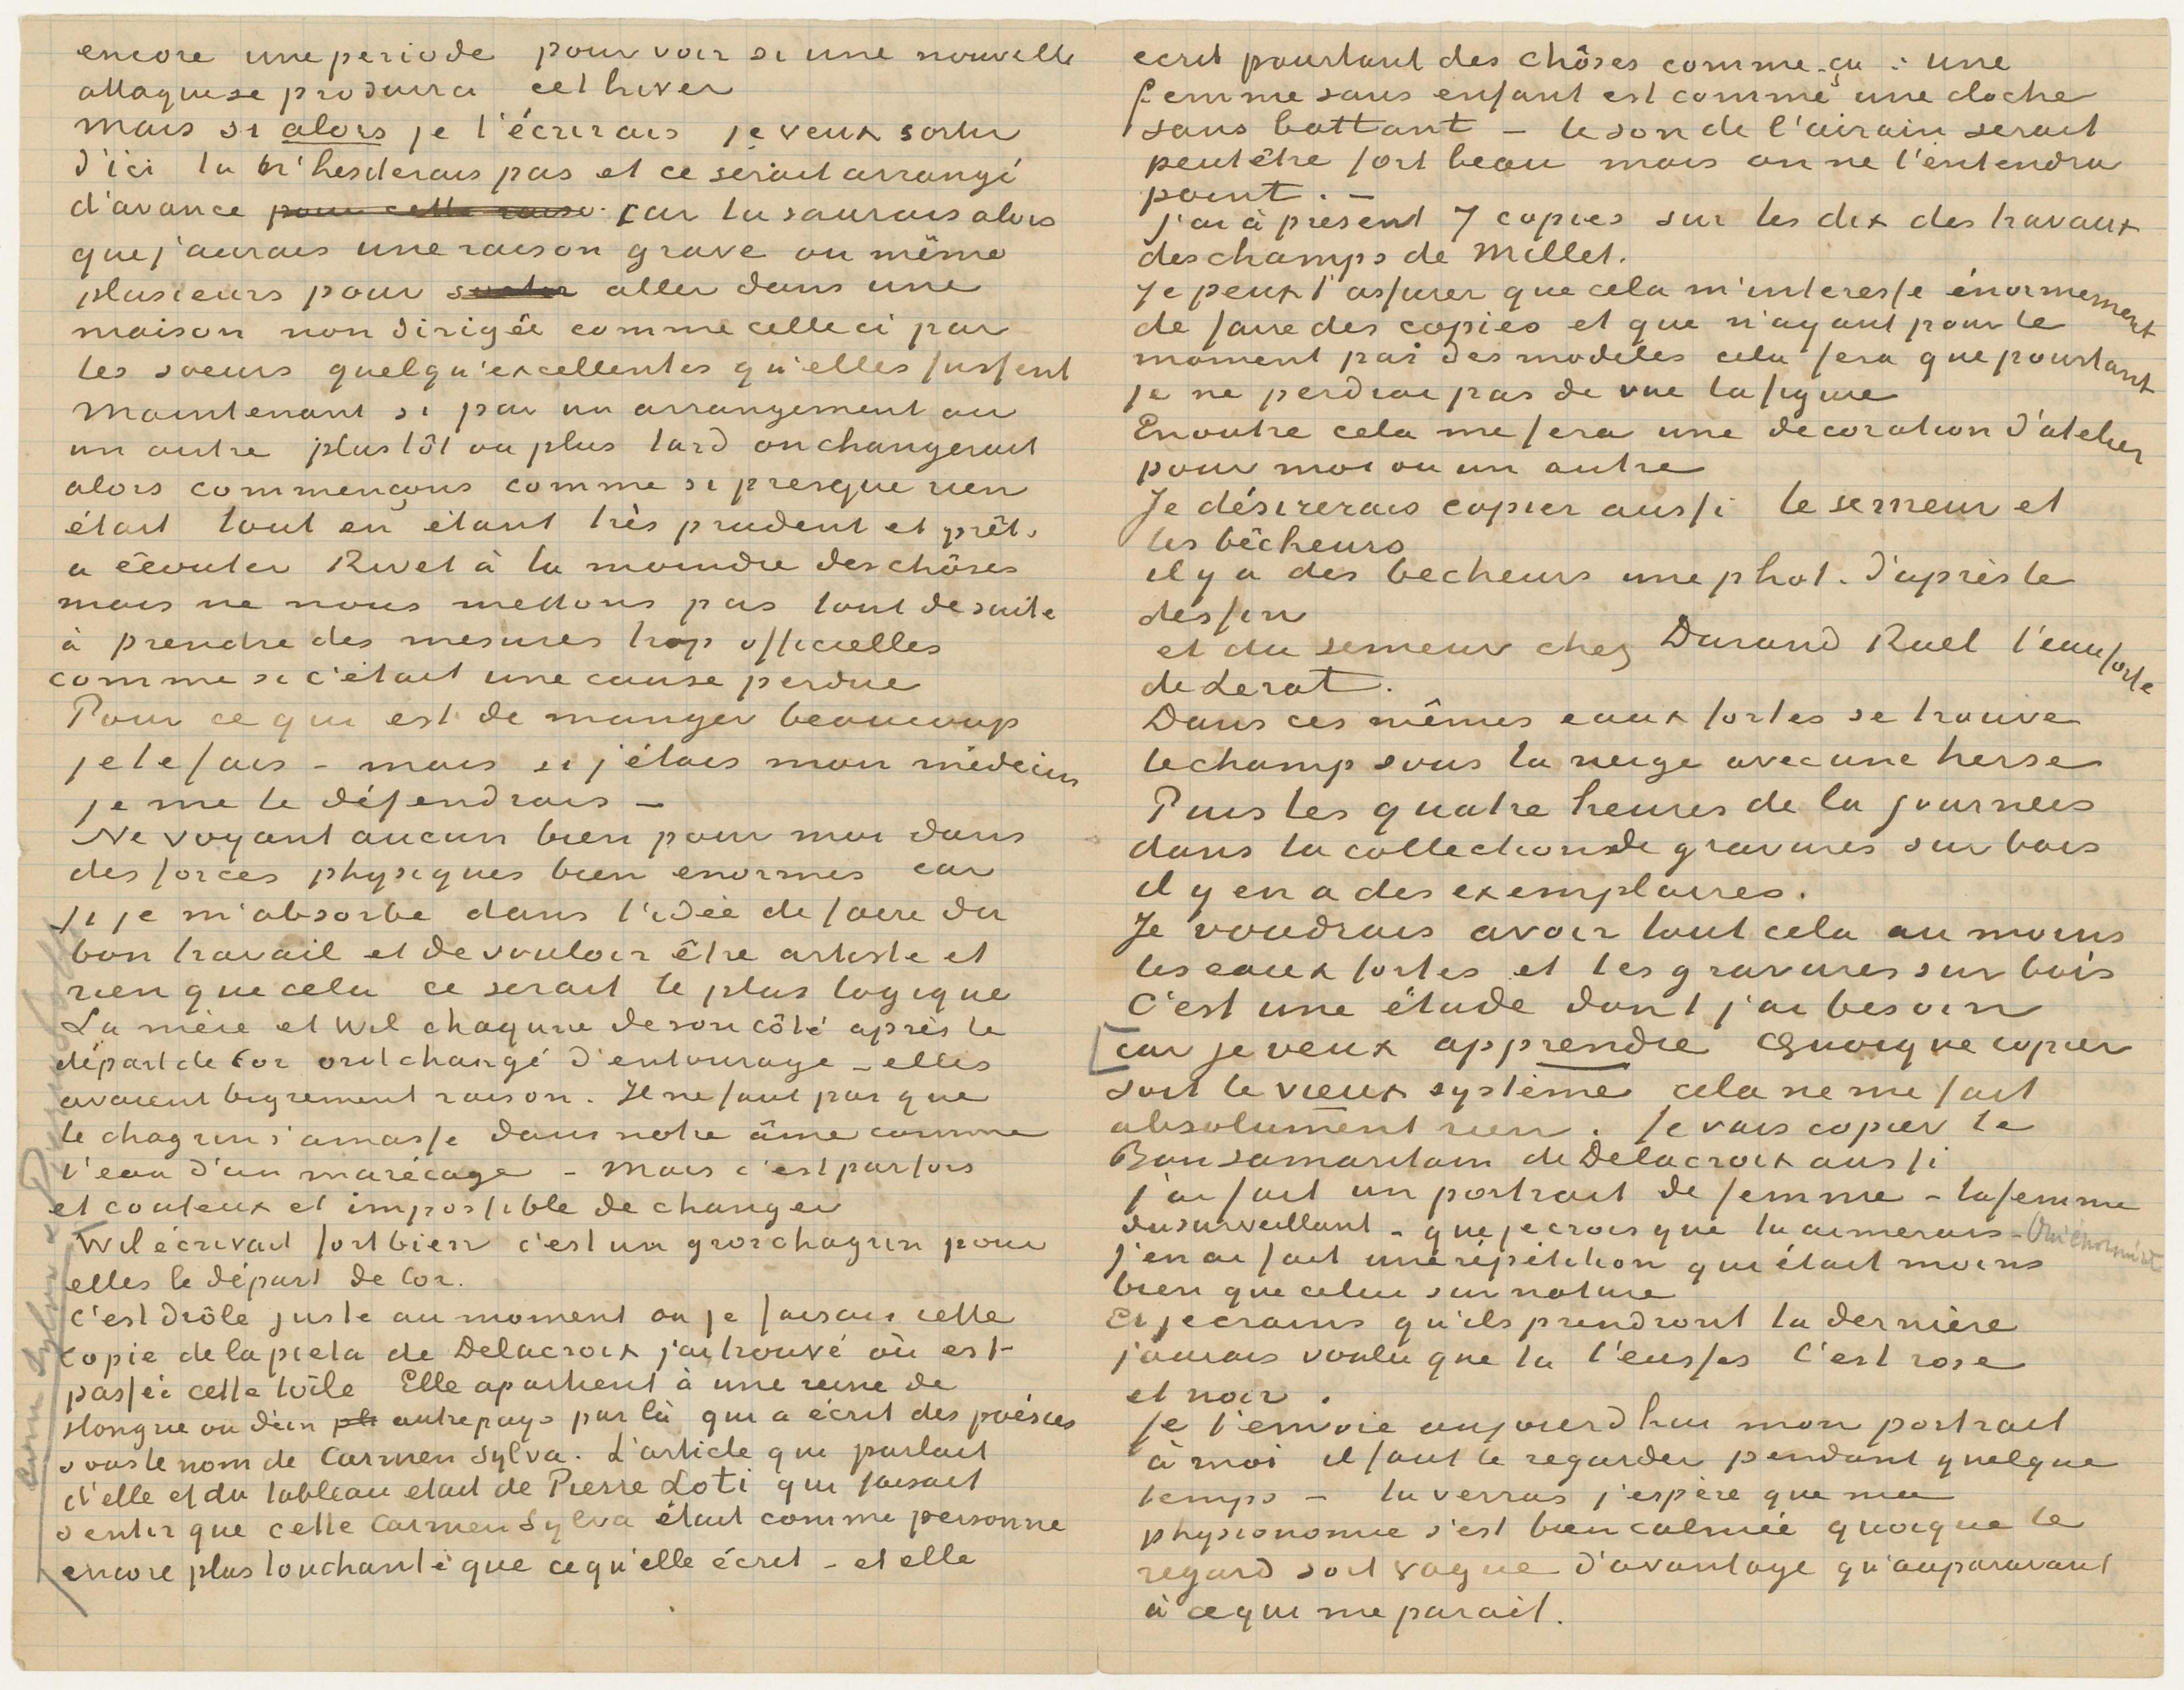 encore une periode pour voir si une nouvelle
attaque se produira cet hiver
mais si alors je t'écrirais je veux sortir
d'ici tu n'hesiterais pas et ce serait arrangé
d'avance pour cette raiso. car tu saurais alors
que j'aurais une raison grave ou même
plusieurs pour sortir aller dans une
maison non dirigée comme celle ci par
les soeurs quelqu'excellentes qu'elles fussent
Maintenant si par un arrangement ou
un autre plus tôt ou plus tard on changerait
alors commençons comme si presque rien
était tout en étant très prudent et prêt.
a éĉouter Rivet à la moindre des chôses
mais ne nous mettons pas tout de suite
à prendre des mesures trop officielles
comme si c'était une cause perdue
Pour ce qui est de manger beaucoup
je le fais – mais si j'étais mon médecin
je me le défendrais –
Ne voyant aucun bien pour moi dans
des forces physiques bien enormes car
si je m'absorbe dans l'idée de faire du
bon travail et de vouloir être artiste et
rien que cela ce serait le plus logique
La mère et Wil chaqune de son côté après le
départ de Cor ont changé d'entourage – elles
avaient bigrement raison. Il ne faut pas que
le chagrin s'amasse dans notre âme comme
l'eau d'un marécage – Mais c'est parfois
et couteux et impossible de changer
Wil écrivait fort bien c'est un gros chagrin pour
elles le départ de Cor.
C'est drôle juste au moment ou je faisais cette
copie de la pieta de Delacroix j'ai trouvé où est
passée cette toîle Elle apartient à une reine de
Hongrie ou d'un autre pays par là qui a écrit des poésies
sous le nom de Carmen Sylva. L'article qui parlait
d'elle et du tableau etait de Pierre Loti qui faisait
sentir que cette Carmen Sylva était comme personne
encore plus touchante que ce qu'elle écrit – et elle
Carmen Sylva
ecrit pourtant des chôses comme ça : une
femme sans enfant est comme une cloche
sans battant – le son de l'airain serait
peutêtre fort beau mais on ne l'entendra
point. –
j'ai à présent 7 copies sur les dix des travaux
des champs de Millet.
Je peux t'assurer que cela m'interesse énormement
de faire des copies et que n'ayant pour le
moment pas des modeles cela fera que pourtant
je ne perdrai pas de vue la figure
En outre cela me fera une decoration d'atelier
pour moi ou un autre
Je désirerais copier aussi le semeur et
les bêcheurs
il y a des becheurs une phot. d'après le
dessin
et du semeur chez Durand Ruel l'eau forte
de Lerat.
Dans ces mêmes eaux fortes se trouve
le champ sous la neige avec une herse
Puis les quatre heures de la journees
dans la collection de gravures sur bois
il y en a des exemplaires.
Je voudrais avoir tout cela au moins
les eaux fortes et les gravures sur bois
C'est une étude dont j'ai besoin
car je veux apprendre Quoique copier
soit le vieux système cela ne me fait
absolument rien. Je vais copier le
Bon samaritain de Delacroix aussi
j'ai fait un portrait de femme – la femme
du surveillant – que je crois que tu aimerais –
j'en ai fait une répétition qui était moins
bien que celui sur nature
Et je crains qu'ils prendront la dernière
j'aurais voulu que tu l'eusses C'est rose
et noir.
Je t'envoie aujourd'hui mon portrait
à moi il faut le regarder pendant quelque
temps – tu verras j'espère que ma
physionomie s'est bien calmée quoique le
regard soit vague d'avantage qu'auparavant
à ce qui me parait.